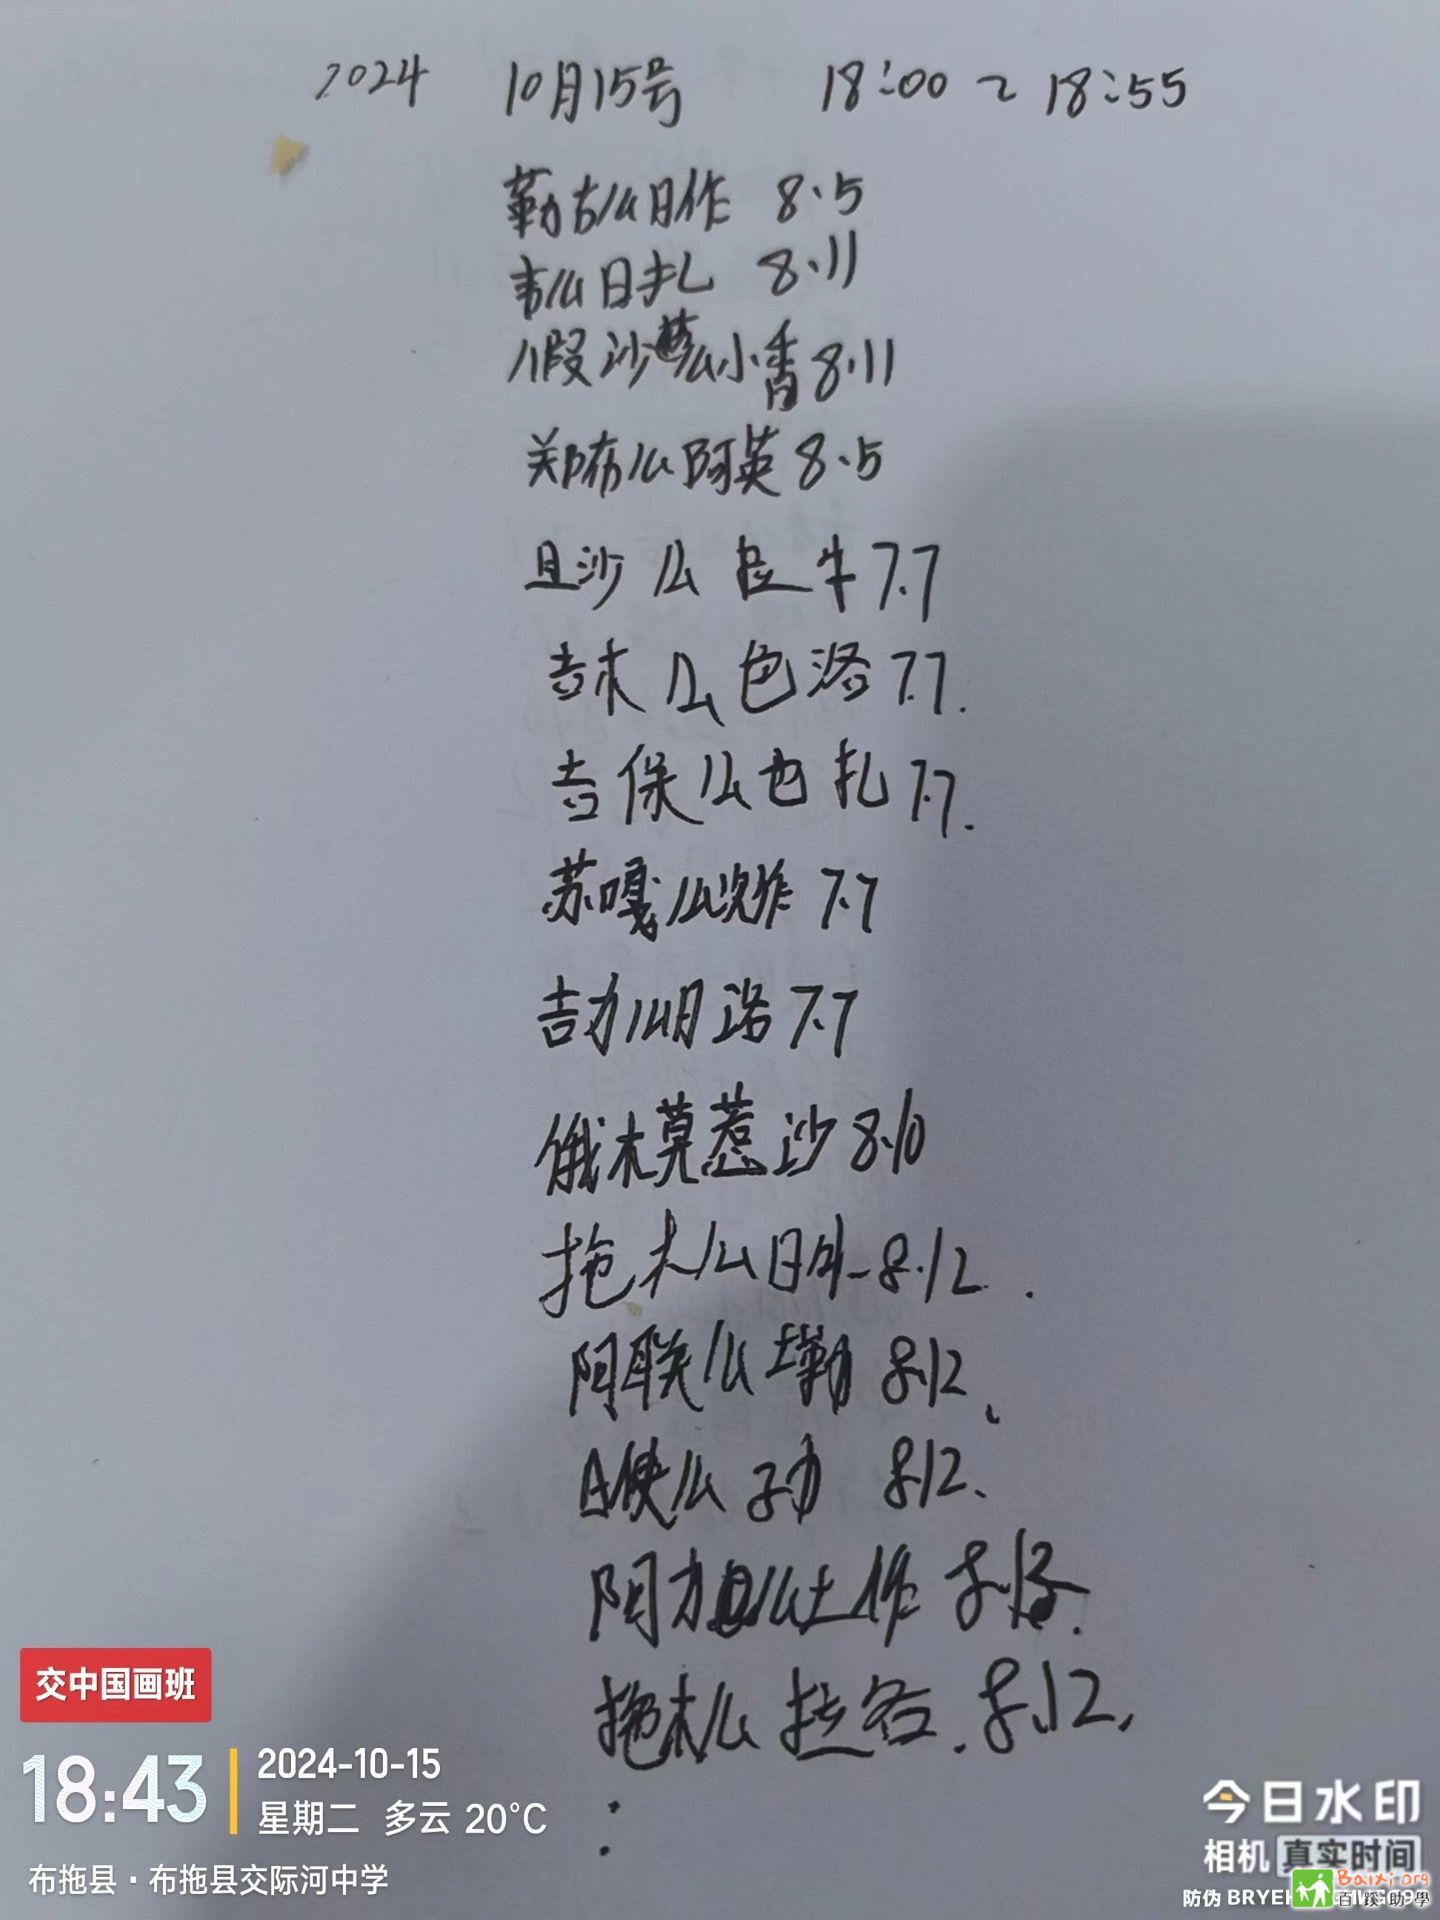 2024 10月15号 18:00～18:55
勒古么日作 8.5
韦么日扎 8.11
沙 么小香 8.11
郑布么阿英 8.5
且沙么拉牛 7.7
吉木么色洛 7.7.
吉保么也扎 7.7.
苏嘎么次作 7.7
吉力么日洛 7.7
俄木莫惹沙 8.10
拖木么日外 8.12.
阿联么 勒 8.12、
么 8.12、
阿力 么土作 8.
拖木么拉各. 8.12,
交中国画班
18:43
2024-10-15
星期二 多云 20°C
布拖县·布拖县交际河中学
今日水印
相机 真实时间
防伪
Baixi.org
百蹊助學